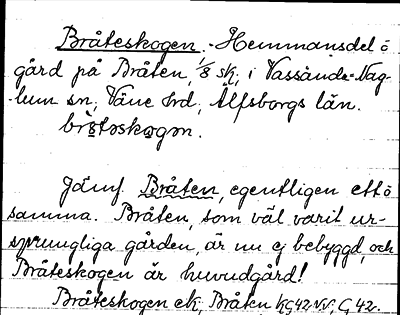 Bråteskogen. - Hemmansdel o
gård på Bråten, 1/8 sk, i Vassända-Nag-
-lum sn, Väne hd, Älfsborgs län.
Jämf. Bråten, egentligen ett o
samma. Bråten, som väl varit ur-
sprungliga gården, är nu ej bebyggd, och
Bråteskogen är huvudgård!
Bråteskogen ek, Bråten